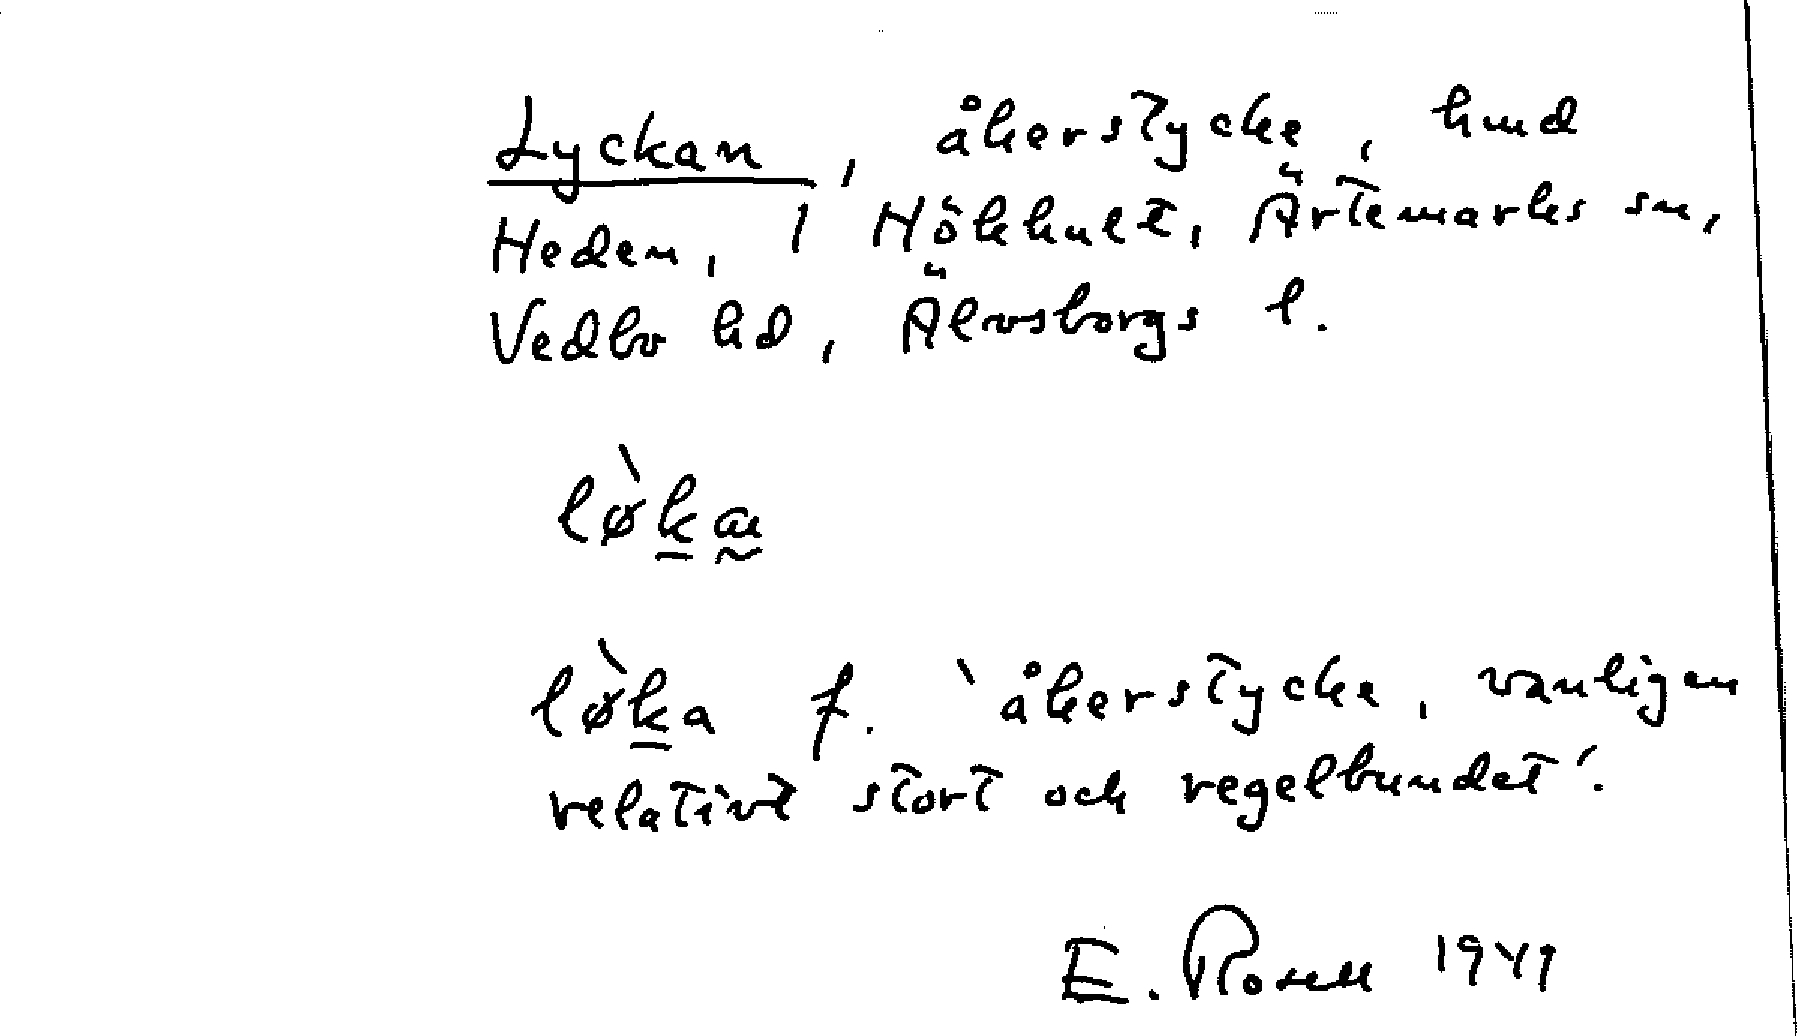 Lyckan, åkerstycke, hmd
Heden, i Hökhult, Ärtemarks sn,
Vedbo hd, Älvsborgs l.
lø̀kaɯ
lø̀ka f. `åkerstycke, vanligen
relativt stort och regelbundet´.
E. Rosell 1941